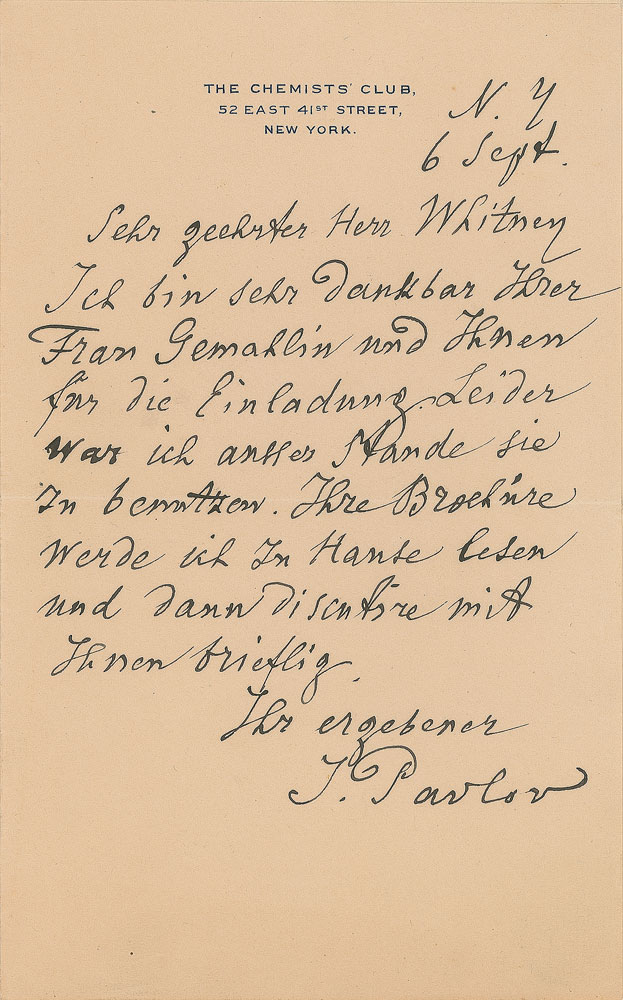 THE CHEMISTS' CLUB,
52 EAST 41ST STREET,
NEW YORK.
N. Y
6 Sept.
Sehr geehrter Herr Whitney
Ich bin sehr dankbar Ihrer
Frau Gemahlin und Ihnen
für die Einladung. Leider
war ich ausser Stande sie
zu benutzen. Ihre Brochüre
werde ich zu Hause lesen
und dann discutire mit
Ihnen brieflig.
Ihr ergebener
J. Pavlov